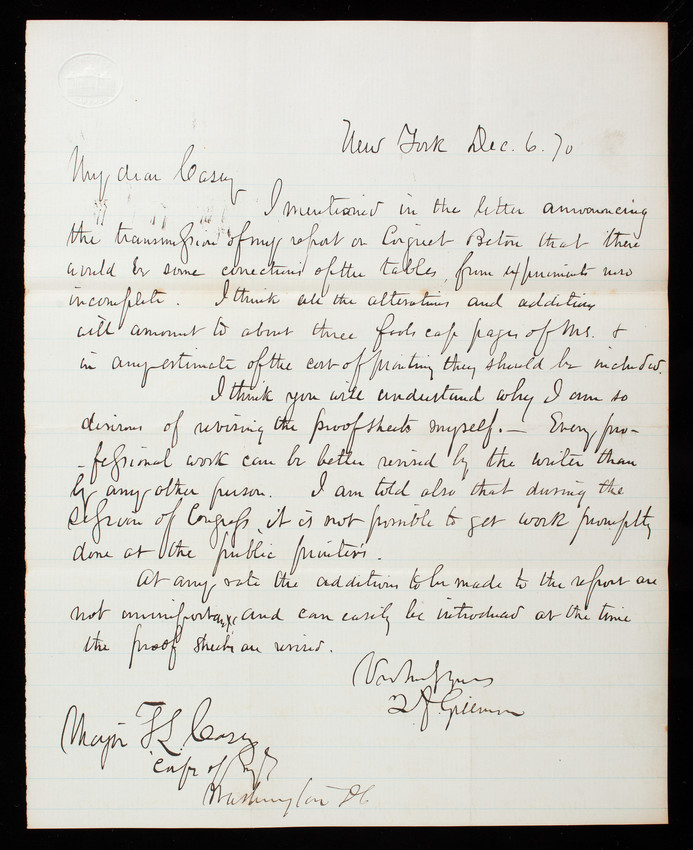 New York Dec. 6. 70
My dear Casey
I mentioned in the letter announcing
the transmission of my report on Coignet Beton that there
would be some corrections of the tables, from experiments now
incomplete. I think all the alterations and additions
will amount to about three foolscap pages of Ms. &
in any estimate of the cost of printing they should be included.
I think you will understand why I am so
desirous of revising the proof sheets myself. — Every pro-
-fessional work can be better revised by the writer than
by any other person. I am told also that during the
session of Congress, it is not possible to get work promptly
done at the public printer's.
At any rate the additions to be made to the report are
not unimportant, and can easily be introduced at the time
the proof sheets are revised.
Very truly yours
Q A Gillmore
Major T L Casey
Corps of Eng'rs
Washington DC